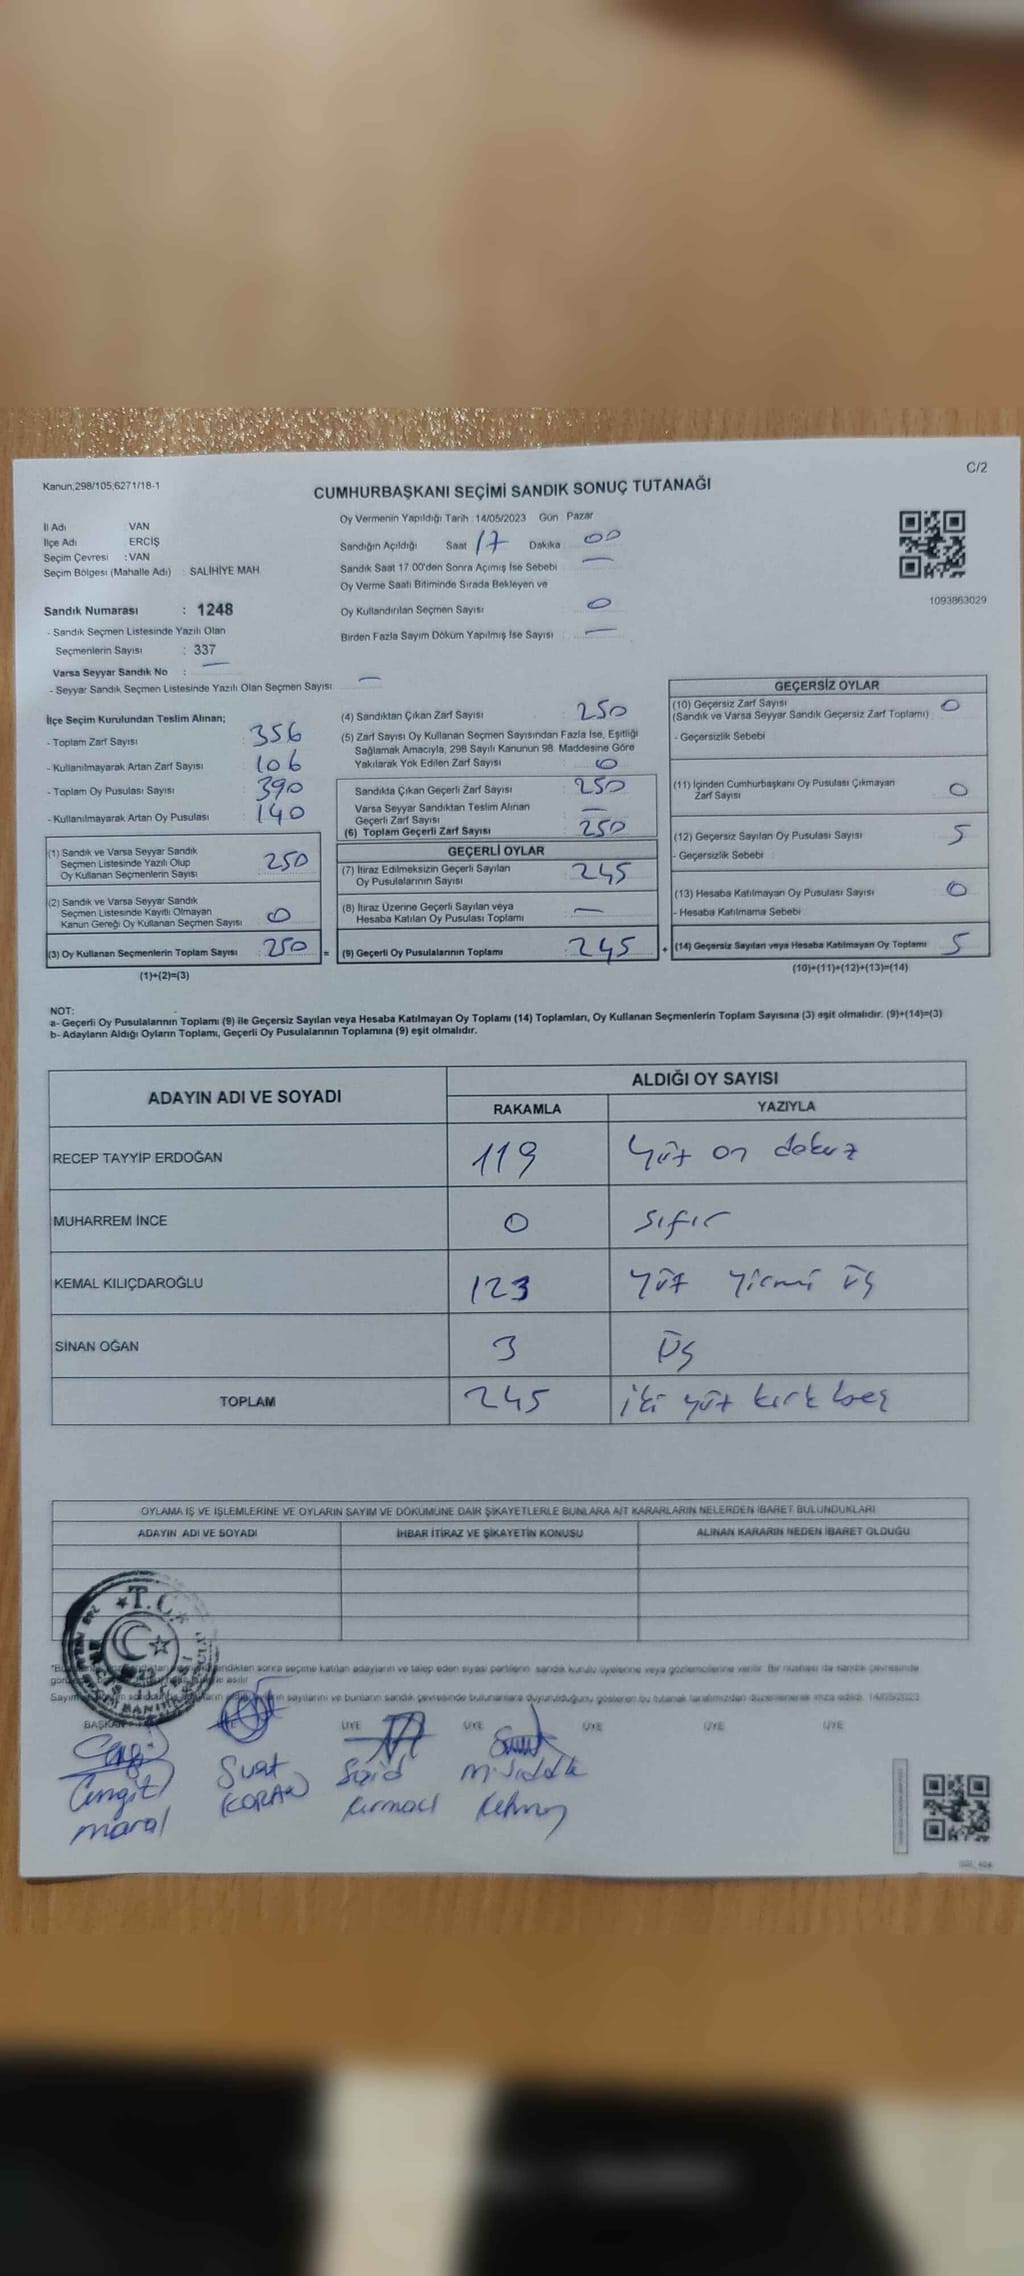 C/2
Kanun,298/105,6271/18-1
CUMHURBAŞKANI SEÇİMİ SANDIK SONUÇ TUTANAĞI
İl Adı VAN
İlçe Adı ERCİŞ
Seçim Çevresi : VAN
Seçim Bölgesi (Mahalle Adı) : SALİHİYE MAH
Sandık Numarası : 1248
- Sandık Seçmen Listesinde Yazılı Olan
Seçmenlerin Sayısı : 337
Varsa Seyyar Sandık No : —
- Seyyar Sandık Seçmen Listesinde Yazılı Olan Seçmen Sayısı —
Oy Vermenin Yapıldığı Tarih :14/05/2023 Gün Pazar
Sandığın Açıldığı Saat 17 Dakika 00
Sandık Saat 17.00'den Sonra Açımış İse Sebebi —
Oy Verme Saati Bitiminde Sırada Bekleyen ve
Oy Kullandırılan Seçmen Sayısı 0
Birden Fazla Sayım Döküm Yapılmış İse Sayısı —
1093863029
İlçe Seçim Kurulundan Teslim Alınan;
- Toplam Zarf Sayısı 356
- Kullanılmayarak Artan Zarf Sayısı 106
- Toplam Oy Pusulası Sayısı 390
- Kullanılmayarak Artan Oy Pusulası 140
(1) Sandık ve Varsa Seyyar Sandık
Seçmen Listesinde Yazılı Olup
Oy Kullanan Seçmenlerin Sayısı 250
(2) Sandık ve Varsa Seyyar Sandık
Seçmen Listesinde Kayıtlı Olmayan
Kanun Gereği Oy Kullanan Seçmen Sayısı 0
(3) Oy Kullanan Seçmenlerin Toplam Sayısı 250 =
(1)+(2)=(3)
(4) Sandıktan Çıkan Zarf Sayısı 250
(5) Zarf Sayısı Oy Kullanan Seçmen Sayısından Fazla İse, Eşitliği
Sağlamak Amacıyla, 298 Sayılı Kanunun 98. Maddesine Göre
Yakılarak Yok Edilen Zarf Sayısı 0
Sandıkta Çıkan Geçerli Zarf Sayısı 250
Varsa Seyyar Sandıktan Teslim Alınan
Geçerli Zarf Sayısı —
(6) Toplam Geçerli Zarf Sayısı 250
GEÇERLİ OYLAR
(7) İtiraz Edilmeksizin Geçerli Sayılan
Oy Pusulalarının Sayısı 245
(8) İtiraz Üzerine Geçerli Sayılan veya
Hesaba Katılan Oy Pusulası Toplamı —
(9) Geçerli Oy Pusulalarının Toplamı 245 +
GEÇERSİZ OYLAR
(10) Geçersiz Zarf Sayısı
(Sandık ve Varsa Seyyar Sandık Geçersiz Zarf Toplamı) 0
- Geçersizlik Sebebi
(11) İçinden Cumhurbaşkanı Oy Pusulası Çıkmayan
Zarf Sayısı 0
(12) Geçersiz Sayılan Oy Pusulası Sayısı 5
- Geçersizlik Sebebi
(13) Hesaba Katılmayan Oy Pusulası Sayısı 0
- Hesaba Katılmama Sebebi
(14) Geçersiz Sayılan veya Hesaba Katılmayan Oy Toplamı 5
(10)+(11)+(12)+(13)=(14)
NOT:
a- Geçerli Oy Pusulalarının Toplamı (9) ile Geçersiz Sayılan veya Hesaba Katılmayan Oy Toplamı (14) Toplamları, Oy Kullanan Seçmenlerin Toplam Sayısına (3) eşit olmalıdır. (9)+(14)=(3)
b- Adayların Aldığı Oyların Toplamı, Geçerli Oy Pusulalarının Toplamına (9) eşit olmalıdır.
ADAYIN ADI VE SOYADI ALDIĞI OY SAYISI
RAKAMLA YAZIYLA
RECEP TAYYİP ERDOĞAN 119 Yüz on dokuz
MUHARREM İNCE 0 sıfır
KEMAL KILIÇDAROĞLU 123 yüz yirmi üş
SİNAN OĞAN 3 üş
TOPLAM 245 iki yüz kırk beş
OYLAMA İŞ VE İŞLEMLERİNE VE OYLARIN SAYIM VE DÖKÜMÜNE DAİR ŞİKAYETLERLE BUNLARA AİT KARARLARIN NELERDEN İBARET BULUNDUKLARI
ADAYIN ADI VE SOYADI İHBAR İTİRAZ VE ŞİKAYETİN KONUSU ALINAN KARARIN NEDEN İBARET OLDUĞU
T.C.
sonra seçime katılan adayların ve talep eden siyasi partilerin sandık kurulu üyelerine veya gözlemcilerine verilir. Bir nüshası da sandık çevresinde
sayılarını ve bunların sandık çevresinde bulunanlara duyurulduğunu gösteren bu tutanak tarafımızdan düzenlenerek imza edildi. 14/05/2023
BAŞKAN ÜYE ÜYE ÜYE ÜYE ÜYE
Cengiz Suat Said M. Sıddık
maral KORAN Kırmacı